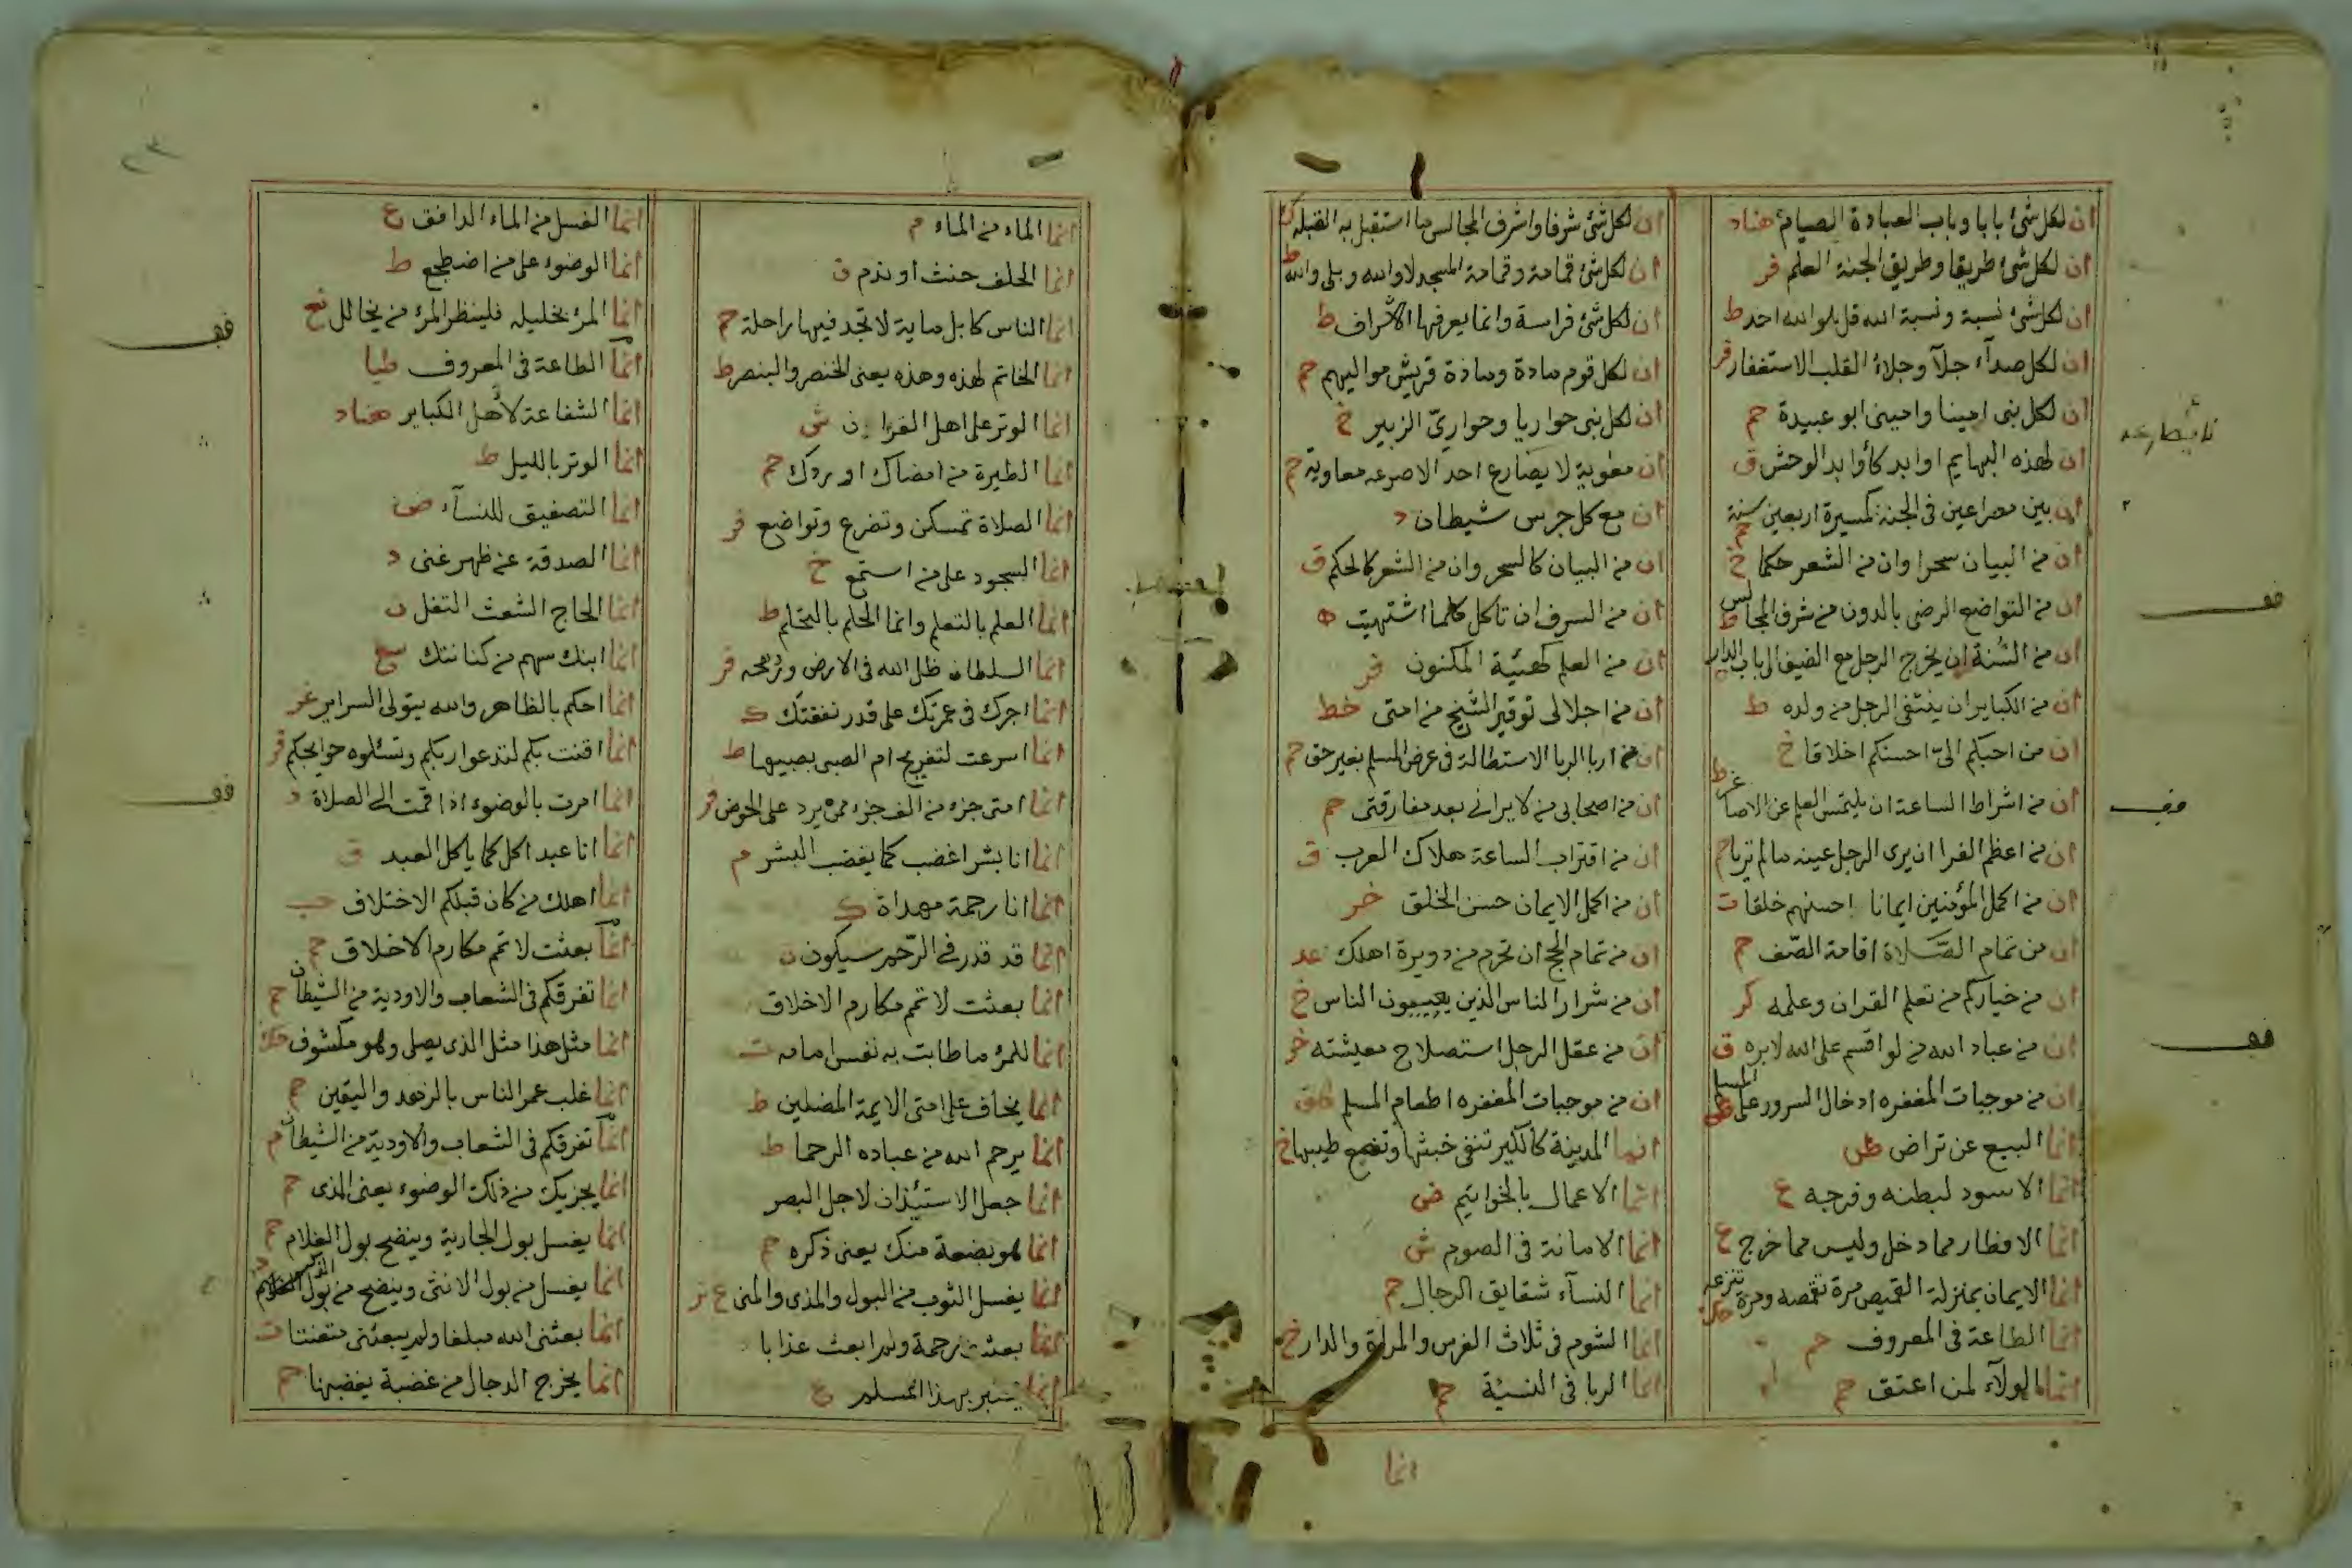 ان لكل شئ بابا وباب العبادة الصيام هناد
ان لكل شئ طريقا وطريق الجنة العلم فر
ان لكل شئ نسبة ونسبة الله قل هو الله احد ط
ان لكل صدآء جلآ وجلاء القلب الاستغفار فر
ان لكل نبى امينا وامينى ابو عبيدة حم
ان لهذه البهايم اوابد كأوابد الوحش ق
ان بين مصراعين فى الجنة كمسيرة اربعين سنة حم
ان من البيان سحرا وان من الشعر حكما خ
ان من التواضع الرضى بالدون من شرف المجالس ط
ان من السنة ان يخرج الرجل مع الضيف الى باب الدار
ان من الكباير ان ينتفى الرجل من ولده ط
ان من احبكم الىّ احسنكم اخلاقا خ
ان من اشراط الساعة ان يلتمس العلم عن الاصاغر ط
ان من اعظم الفرا ان يرى الرجل عينه ما لم تريا حم
ان من اكمل المؤمنين ايمانا احسنهم خلقا ت
ان من تمام الصلاة اقامة الصف حم
ان من خياركم من تعلم القران وعلمه كر
ان من عباد الله من لو اقسم على الله لابره ق
ان من موجبات المغفره ادخال السرور على المسلم ط
انما البيع عن تراض
انما الاسود لبطنه وفرجه ع
انما الافطار مما دخل وليس مما خرج ع
انما الايمان بمنزلة القميص مرة تقمصه ومرة تنزعه
انما الطاعة فى المعروف حم
انما الولآء لمن اعتق حم
ان لكل شئ شرفا واشرف المجالس ما استقبل به القبله ك
ان لكل شئ قمامة وقمامة المسجد لا والله وبلى والله ط
ان لكل شئ فراسة وانما يعرفها الاشراف ط
ان لكل قوم مادة ومادة قريش مواليهم حم
ان لكل نبى حواريا وحوارىّ الزبير خ
ان معوية لا يصارع احد الا صرعه معاوية حم
ان مع كل جرس شيطان د
ان من البيان كالسحر وان من الشعر كالحكم ق
ان من السرف ان تاكل كلما اشتهيت ه
ان من العلم كهيئة المكنون فر
ان من اجلالى توقير الشيخ من امتى خط
ان من اربا الربا الاستطالة فى عرض المسلم بغير حق حم
ان من اصحابى من لا يرانى بعد مفارقتى حم
ان من اقتراب الساعة هلاك العرب ق
ان من اكمل الايمان حسن الخلق خر
ان من تمام الحج ان تحرم من دويرة اهلك عد
ان من شرار الناس الذين يعيبون الناس خ
ان من عقل الرجل استصلاح معيشته خر
ان من موجبات المغفره اطعام المسلم
انما المدينة كالكير تنفى خبثها وتنصع طيبها خ
انما الاعمال بالخواتيم ض
انما الامانة فى الصوم ش
انما النسآء شقايق الرجال حم
انما الشوم فى ثلاث الفرس والمراة والدار خ
انما الربا فى النسيئة حم
انما
انما الماء من الماء م
انما الحلف حنث او ندم ق
انما الناس كابل ماية لا تجد فيها راحلة حم
انما الخاتم لهذه وهذه يعنى الخنصر والبنصر ط
انما الوتر على اهل القران ش
انما الطيرة من امضاك او ردك حم
انما الصلاة تمسكن وتضرع وتواضع فر
انما السجود على من استمع خ
انما العلم بالتعلم وانما الحلم بالتحلم ط
انما السلطان ظل الله فى الارض ورمحه فر
انما اجرك فى عمرتك على قدر نفقتك ك
انما اسرعت لتفرغ ام الصبى بصبيها ط
انما امتى جزء من الف جزء ممن يرد على الحوض فر
انما انا بشر اغضب كما يغضب البشر م
انما انا رحمة مهداة ك
انما قد قدر فى الرحم سيكون ن
انما بعثت لاتمم مكارم الاخلاق
انما للمرء ما طابت به نفس امامه ت
انما يخاف على امتى الايمة المضلين ط
انما يرحم الله من عباده الرحما ط
انما جعل الاستئذان لاجل البصر
انما هو بضعة منك يعنى ذكره حم
انما يغسل الثوب من البول والمذى والمنى ع
انما بعثت رحمة ولم ابعث عذابا
انما بهذا المسلم ع
انما الغسل من الماء الدافق ع
انما الوضوء على من اضطجع ط
انما المرء بخليله فلينظر المرء من يخالل
انما الطاعة فى المعروف طيا
انما الشفاعة لاهل الكباير هناد
انما الوتر بالليل ط
انما التصفيق للنسآء ض
انما الصدقة عن ظهر غنى د
انما الحاج الشعث التفل ن
انما ابنك سهم من كنانتك
انما احكم بالظاهر والله يتولى السراير غر
انما اقنت بكم لتدعوا ربكم وتسئلوه حوايجكم فر
انما امرت بالوضوء اذا قمت الى الصلاة د
انما انا عبد اكل كما ياكل العبد ق
انما اهلك من كان قبلكم الاختلاف حب
انما بعثت لاتمم مكارم الاخلاق حم
انما تفرقكم فى الشعاب والاودية من الشيطان حم
انما مثل هذا مثل الذى يصلى وهو مكشوف
انما غلب عمر الناس بالزهد واليقين حم
انما تفرقكم فى الشعاب والاودية من الشيطان م
انما يجزيك من ذلك الوضوء يعنى المذى حم
انما يغسل بول الجارية وينضح بول الغلام حم
انما يغسل من بول الانثى وينضح من بول الذكر
انما بعثنى الله مبلغا ولم يبعثنى متعنتا ت
انما يخرج الدجال من غضبة يغضبها حم